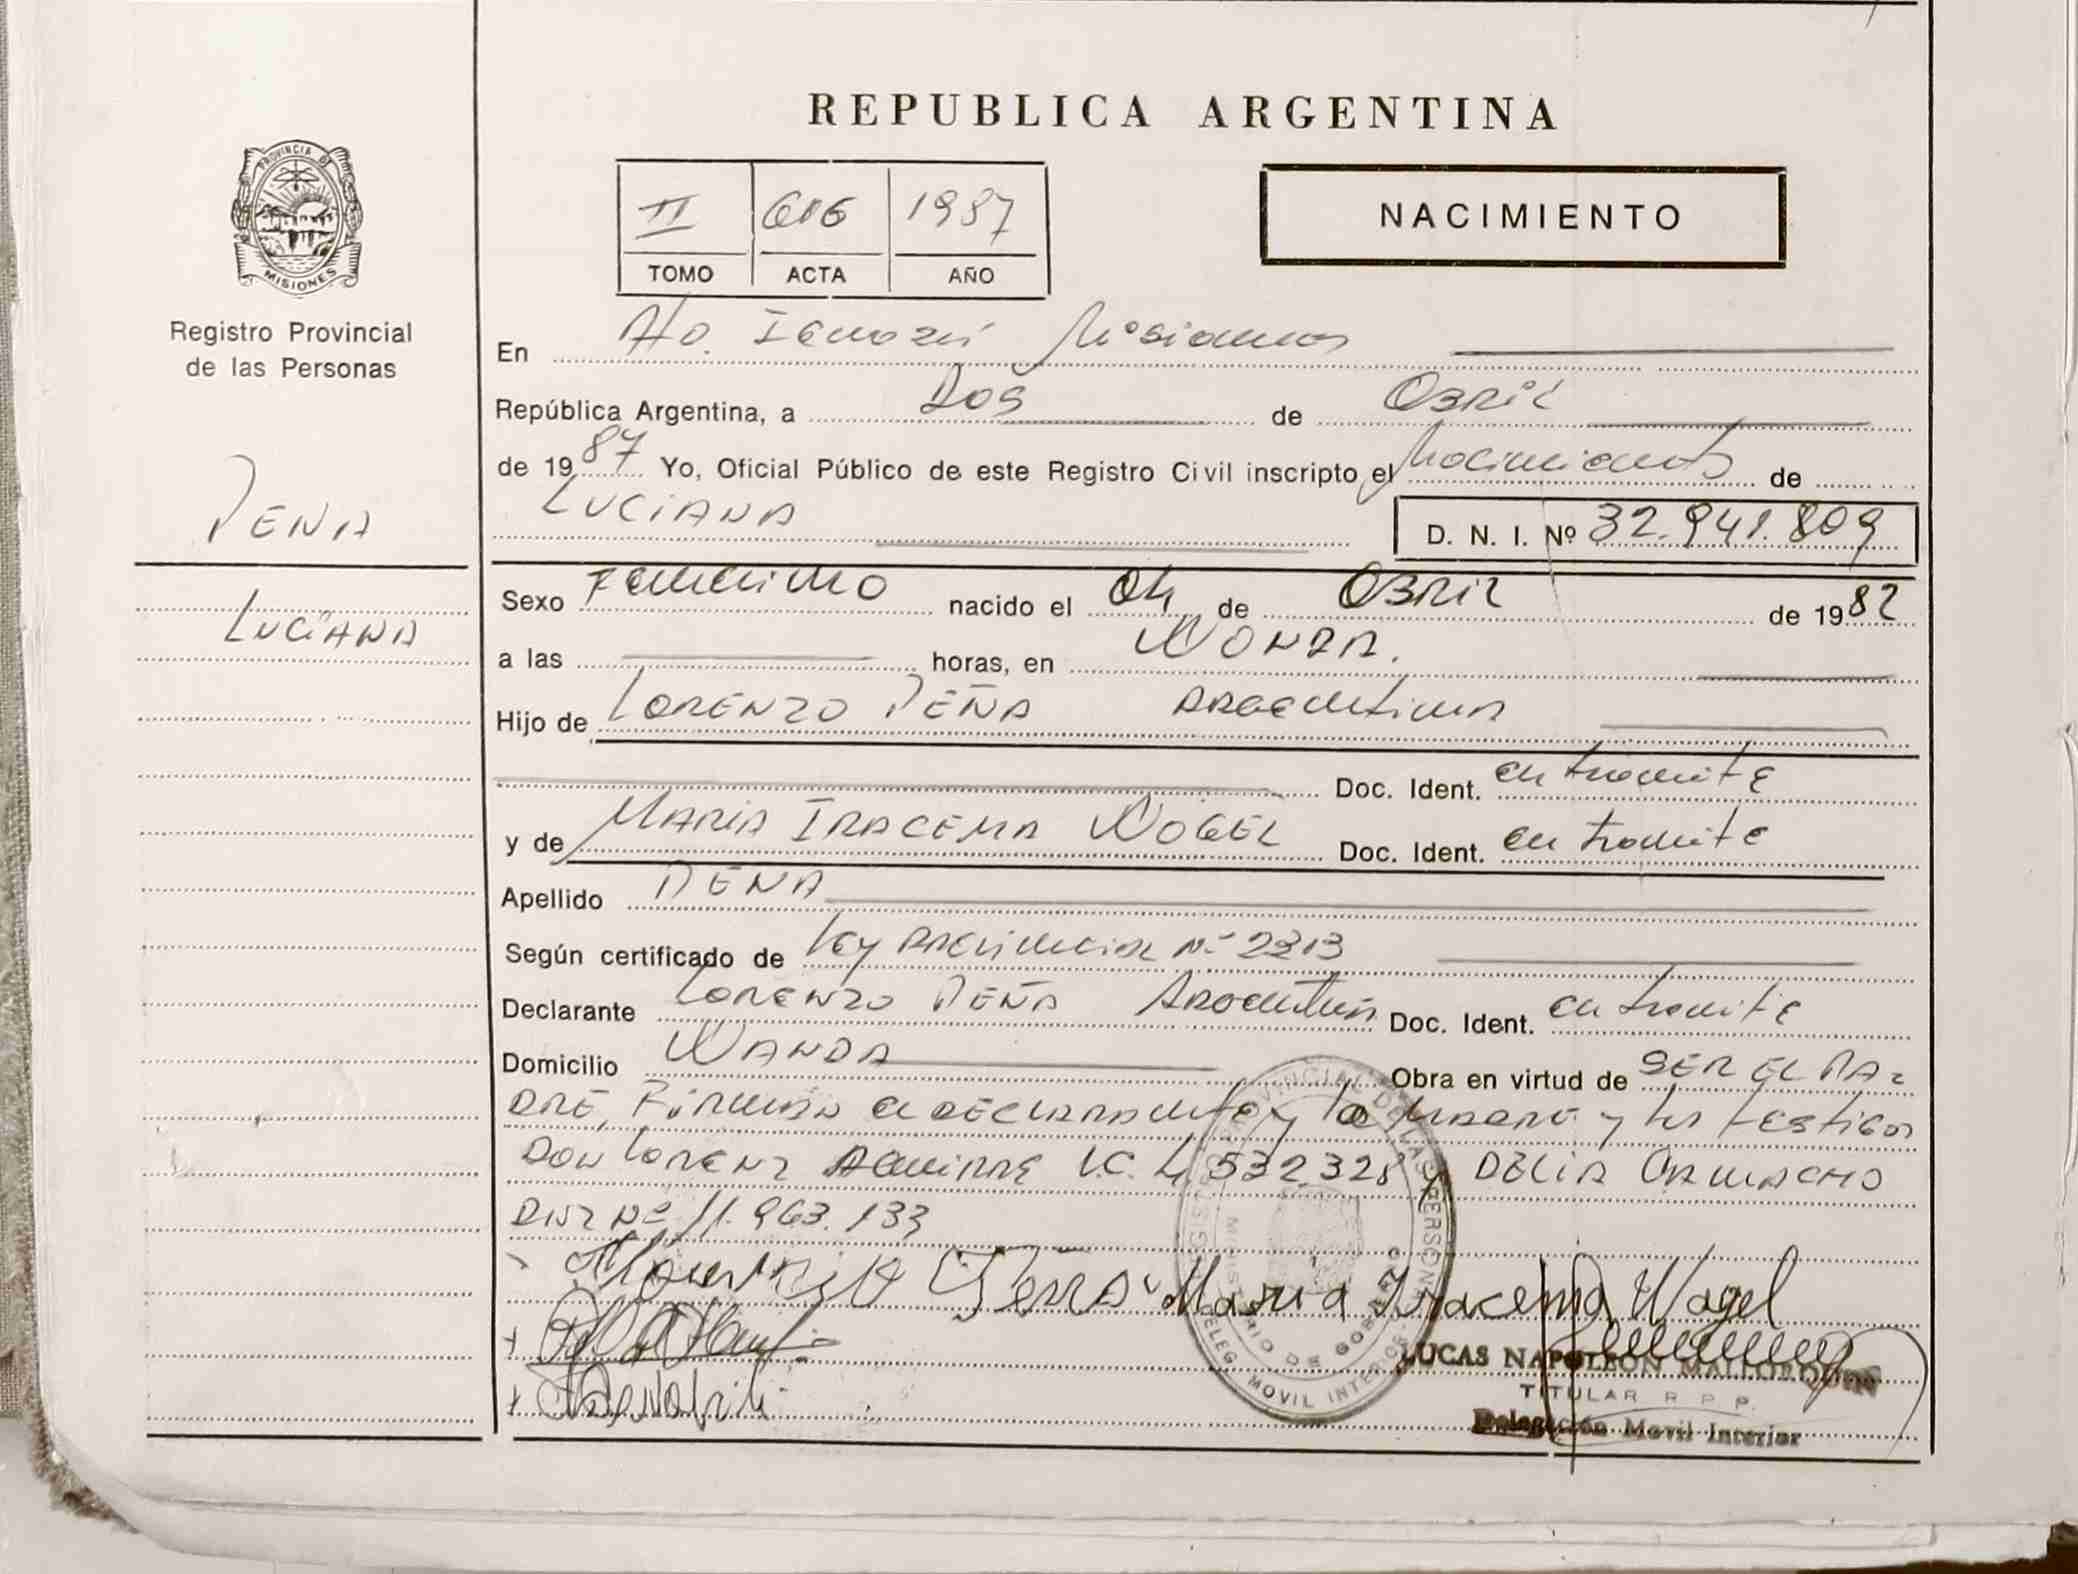 REPUBLICA ARGENTINA
PROVINCIA DE
MISIONES
Registro Provincial
de las Personas
II 616 1987
TOMO ACTA AÑO
NACIMIENTO
En Pto. Iguazú Misiones
República Argentina, a Dos de Abril
de 1987 Yo, Oficial Público de este Registro Civil inscripto el Nacimiento de
LUCIANA D. N. I. Nº 32.941.809
PEÑA
LUCIANA
Sexo Femenino nacido el 04 de Abril de 1982
a las horas, en WANDA.
Hijo de LORENZO PEÑA Argentina
Doc. Ident. en tramite
y de MARIA IRACEMA WOGEL Doc. Ident. en tramite
Apellido PEÑA
Según certificado de Ley Provincial Nº 2313
Declarante LORENZO PEÑA Argentina Doc. Ident. en tramite
Domicilio WANDA Obra en virtud de SER EL PA=
DRE, Firman el declarante y la madre y los testigos
DON LORENZ AGUIRRE I.C. 4.532.328 y DELIA CAMACHO
DNI Nº 11.963.133
Maria Iracema Wagel
LUCAS NAPOLEON MALLORQUIN
TITULAR R. P. P.
Delegación Movil Interior
MINISTERIO DE GOBIERNO
DELEG. MOVIL INTERIOR